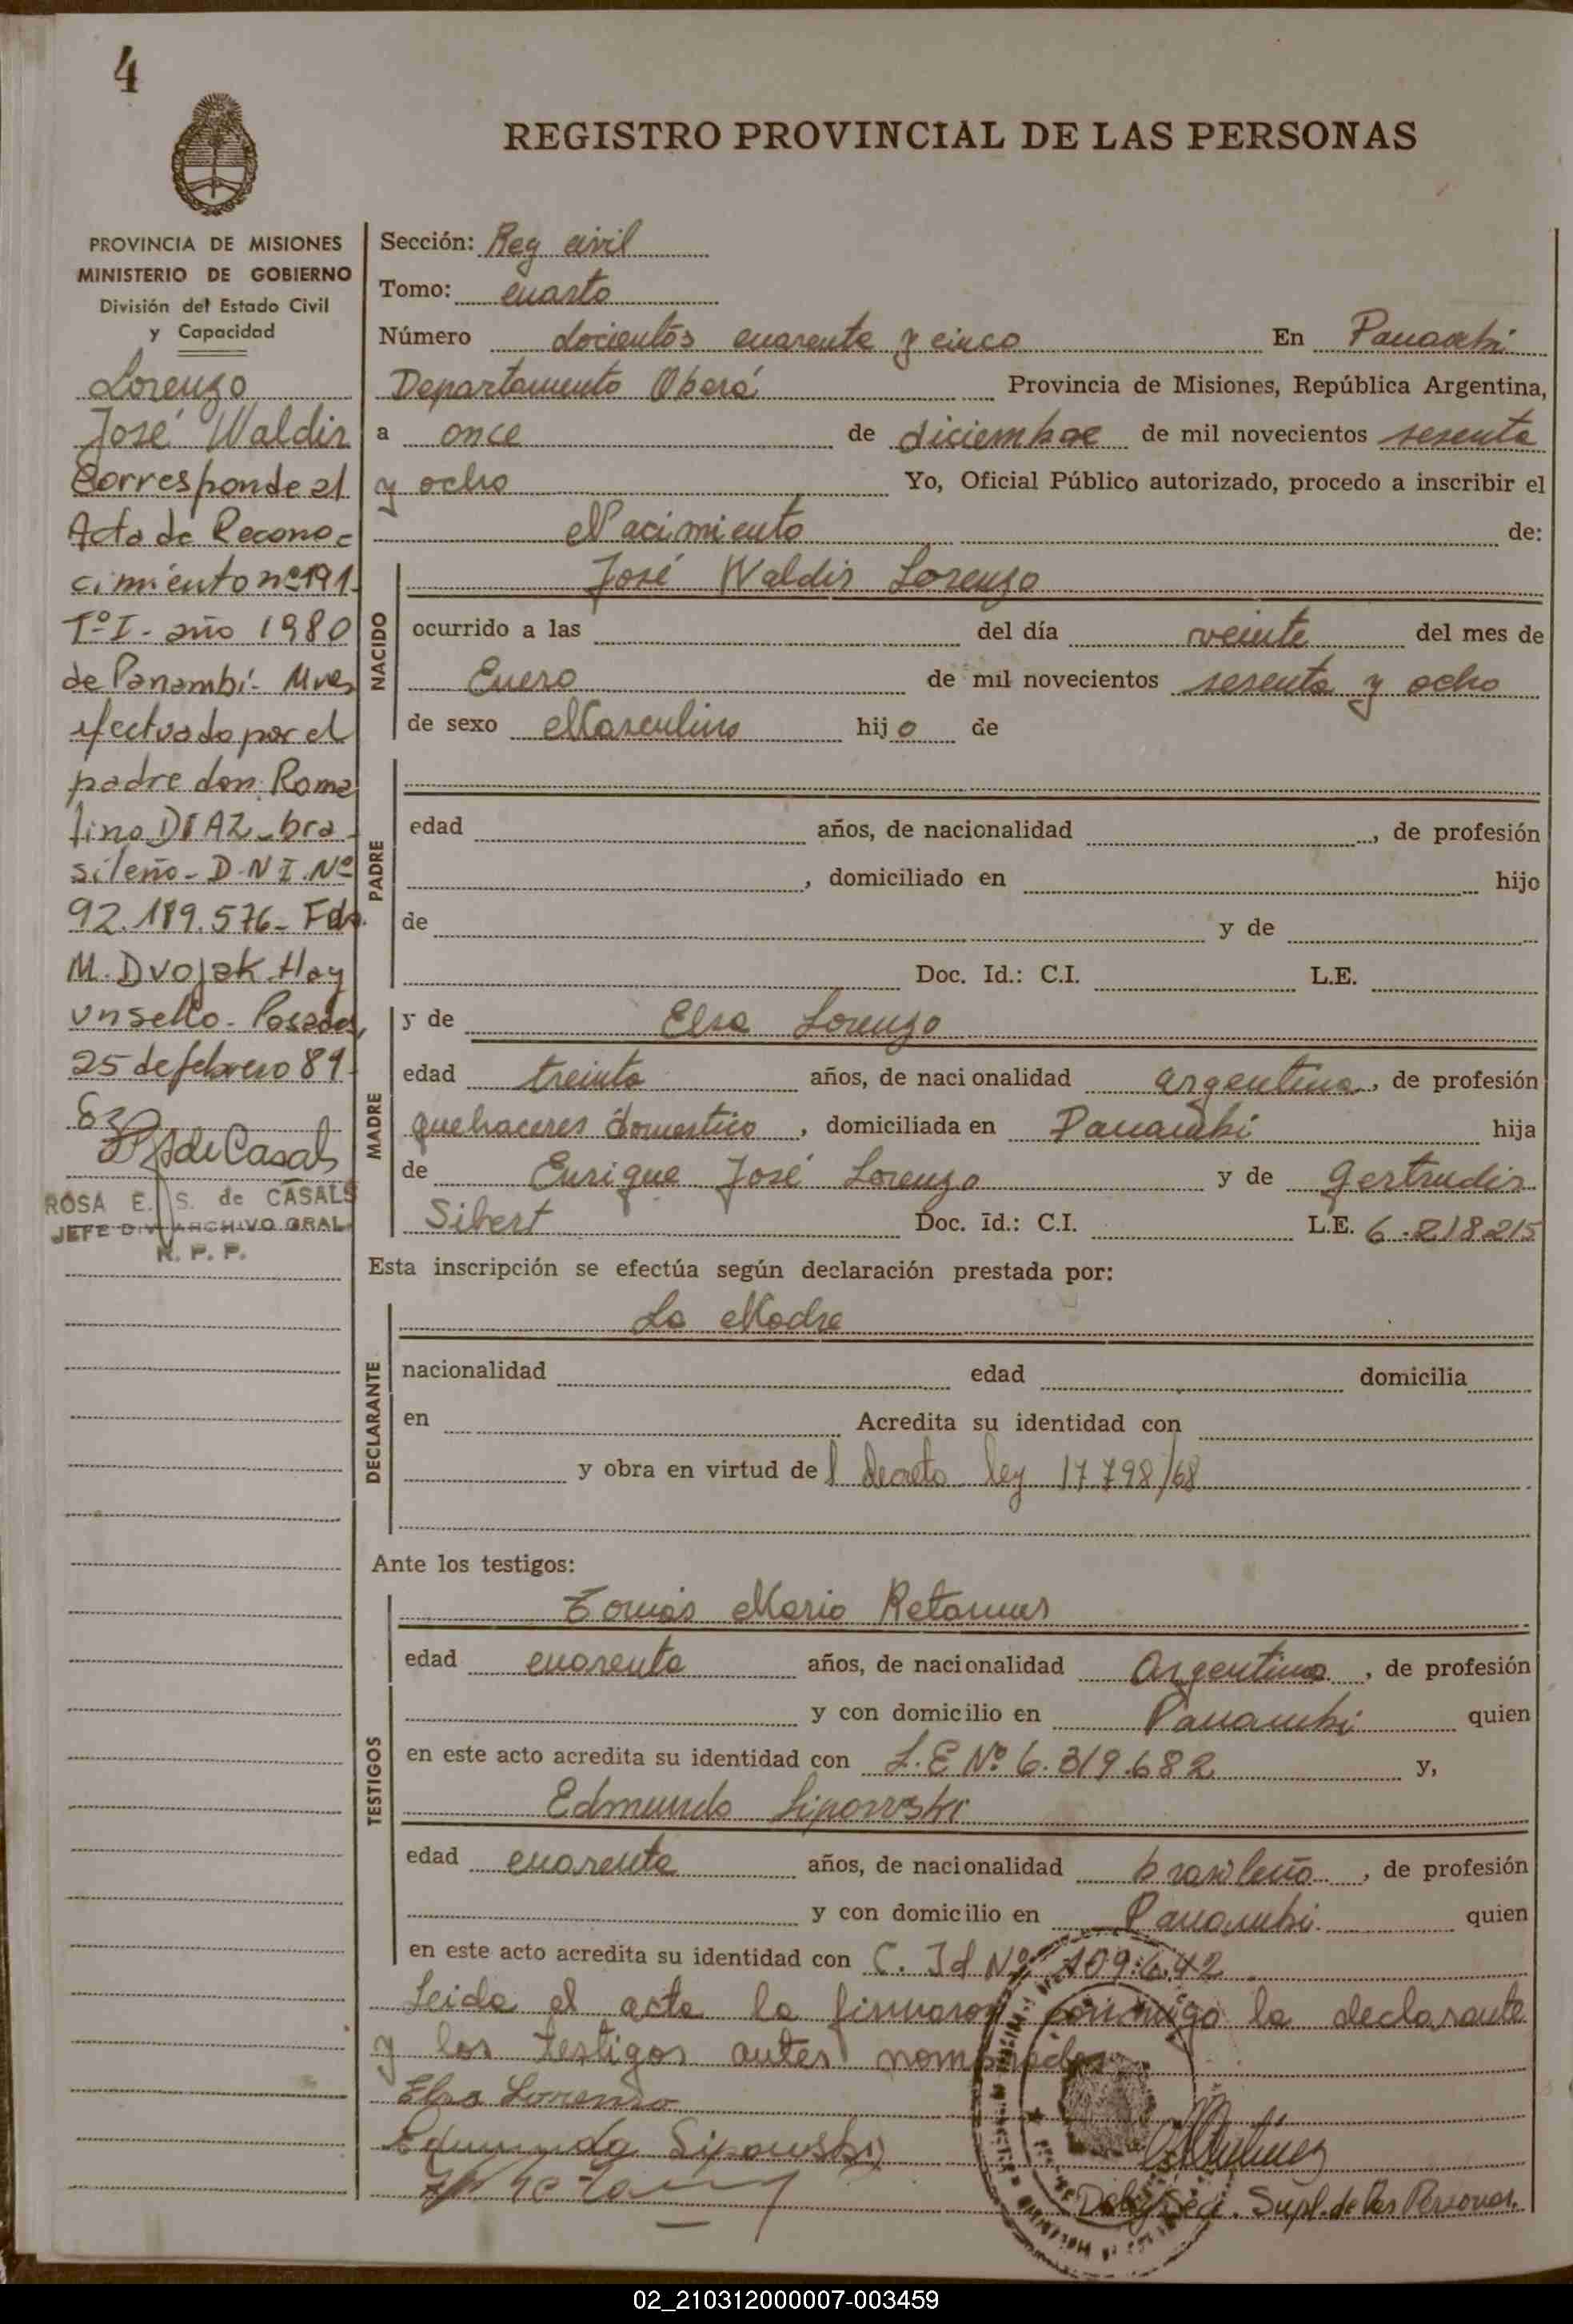 4
REGISTRO PROVINCIAL DE LAS PERSONAS
PROVINCIA DE MISIONES
MINISTERIO DE GOBIERNO
División del Estado Civil
y Capacidad
Lorenzo
José Waldir
Corresponde al
Acta de Recono-
cimiento nº 191
Tº I - año 1980
de Panambí - Mnes
efectuado por el
padre don Roma
lino DIAZ - bra-
sileño - D.N.I. Nº
92.189.576 - Fdo.
M. Dvojak Hay
un sello - Posadas,
25 de febrero 81
de Casals
ROSA E. S. de CASALS
JEFE DIV ARCHIVO GRAL
R. P. P.
Sección: Reg civil
Tomo: cuarto
Número docientos cuarenta y cinco En Panambi
Departamento Oberá Provincia de Misiones, República Argentina,
a once de diciembre de mil novecientos sesenta
y ocho Yo, Oficial Público autorizado, procedo a inscribir el
Nacimiento de:
NACIDO
José Waldir Lorenzo
ocurrido a las del día veinte del mes de
Enero de mil novecientos sesenta y ocho
de sexo Masculino hijo de
PADRE
edad años, de nacionalidad , de profesión
, domiciliado en hijo
de y de
Doc. Id.: C.I. L.E.
MADRE
y de Elsa Lorenzo
edad treinta años, de nacionalidad argentina, de profesión
quehaceres domestico, domiciliada en Panambi hija
de Enrique José Lorenzo y de Gertrudis
Sibert Doc. Id.: C.I. L.E. 6.218215
Esta inscripción se efectúa según declaración prestada por:
DECLARANTE
La Madre
nacionalidad edad domicilia
en Acredita su identidad con
y obra en virtud del decreto ley 17.798/68
Ante los testigos:
TESTIGOS
Tomás Mario
edad cuarenta años, de nacionalidad Argentina, de profesión
y con domicilio en Panambi quien
en este acto acredita su identidad con L.E Nº 6.319.682 y,
Edmundo Sipowski
edad cuarenta años, de nacionalidad brasileño, de profesión
y con domicilio en Panambi quien
en este acto acredita su identidad con C. Id Nº 109.642
Leida el acta la firmaron conmigo la declarante
y los testigos antes nombrados
Elsa Lorenzo
Edmundo Sipowski
Supl. de las Personas.
02_210312000007-003459